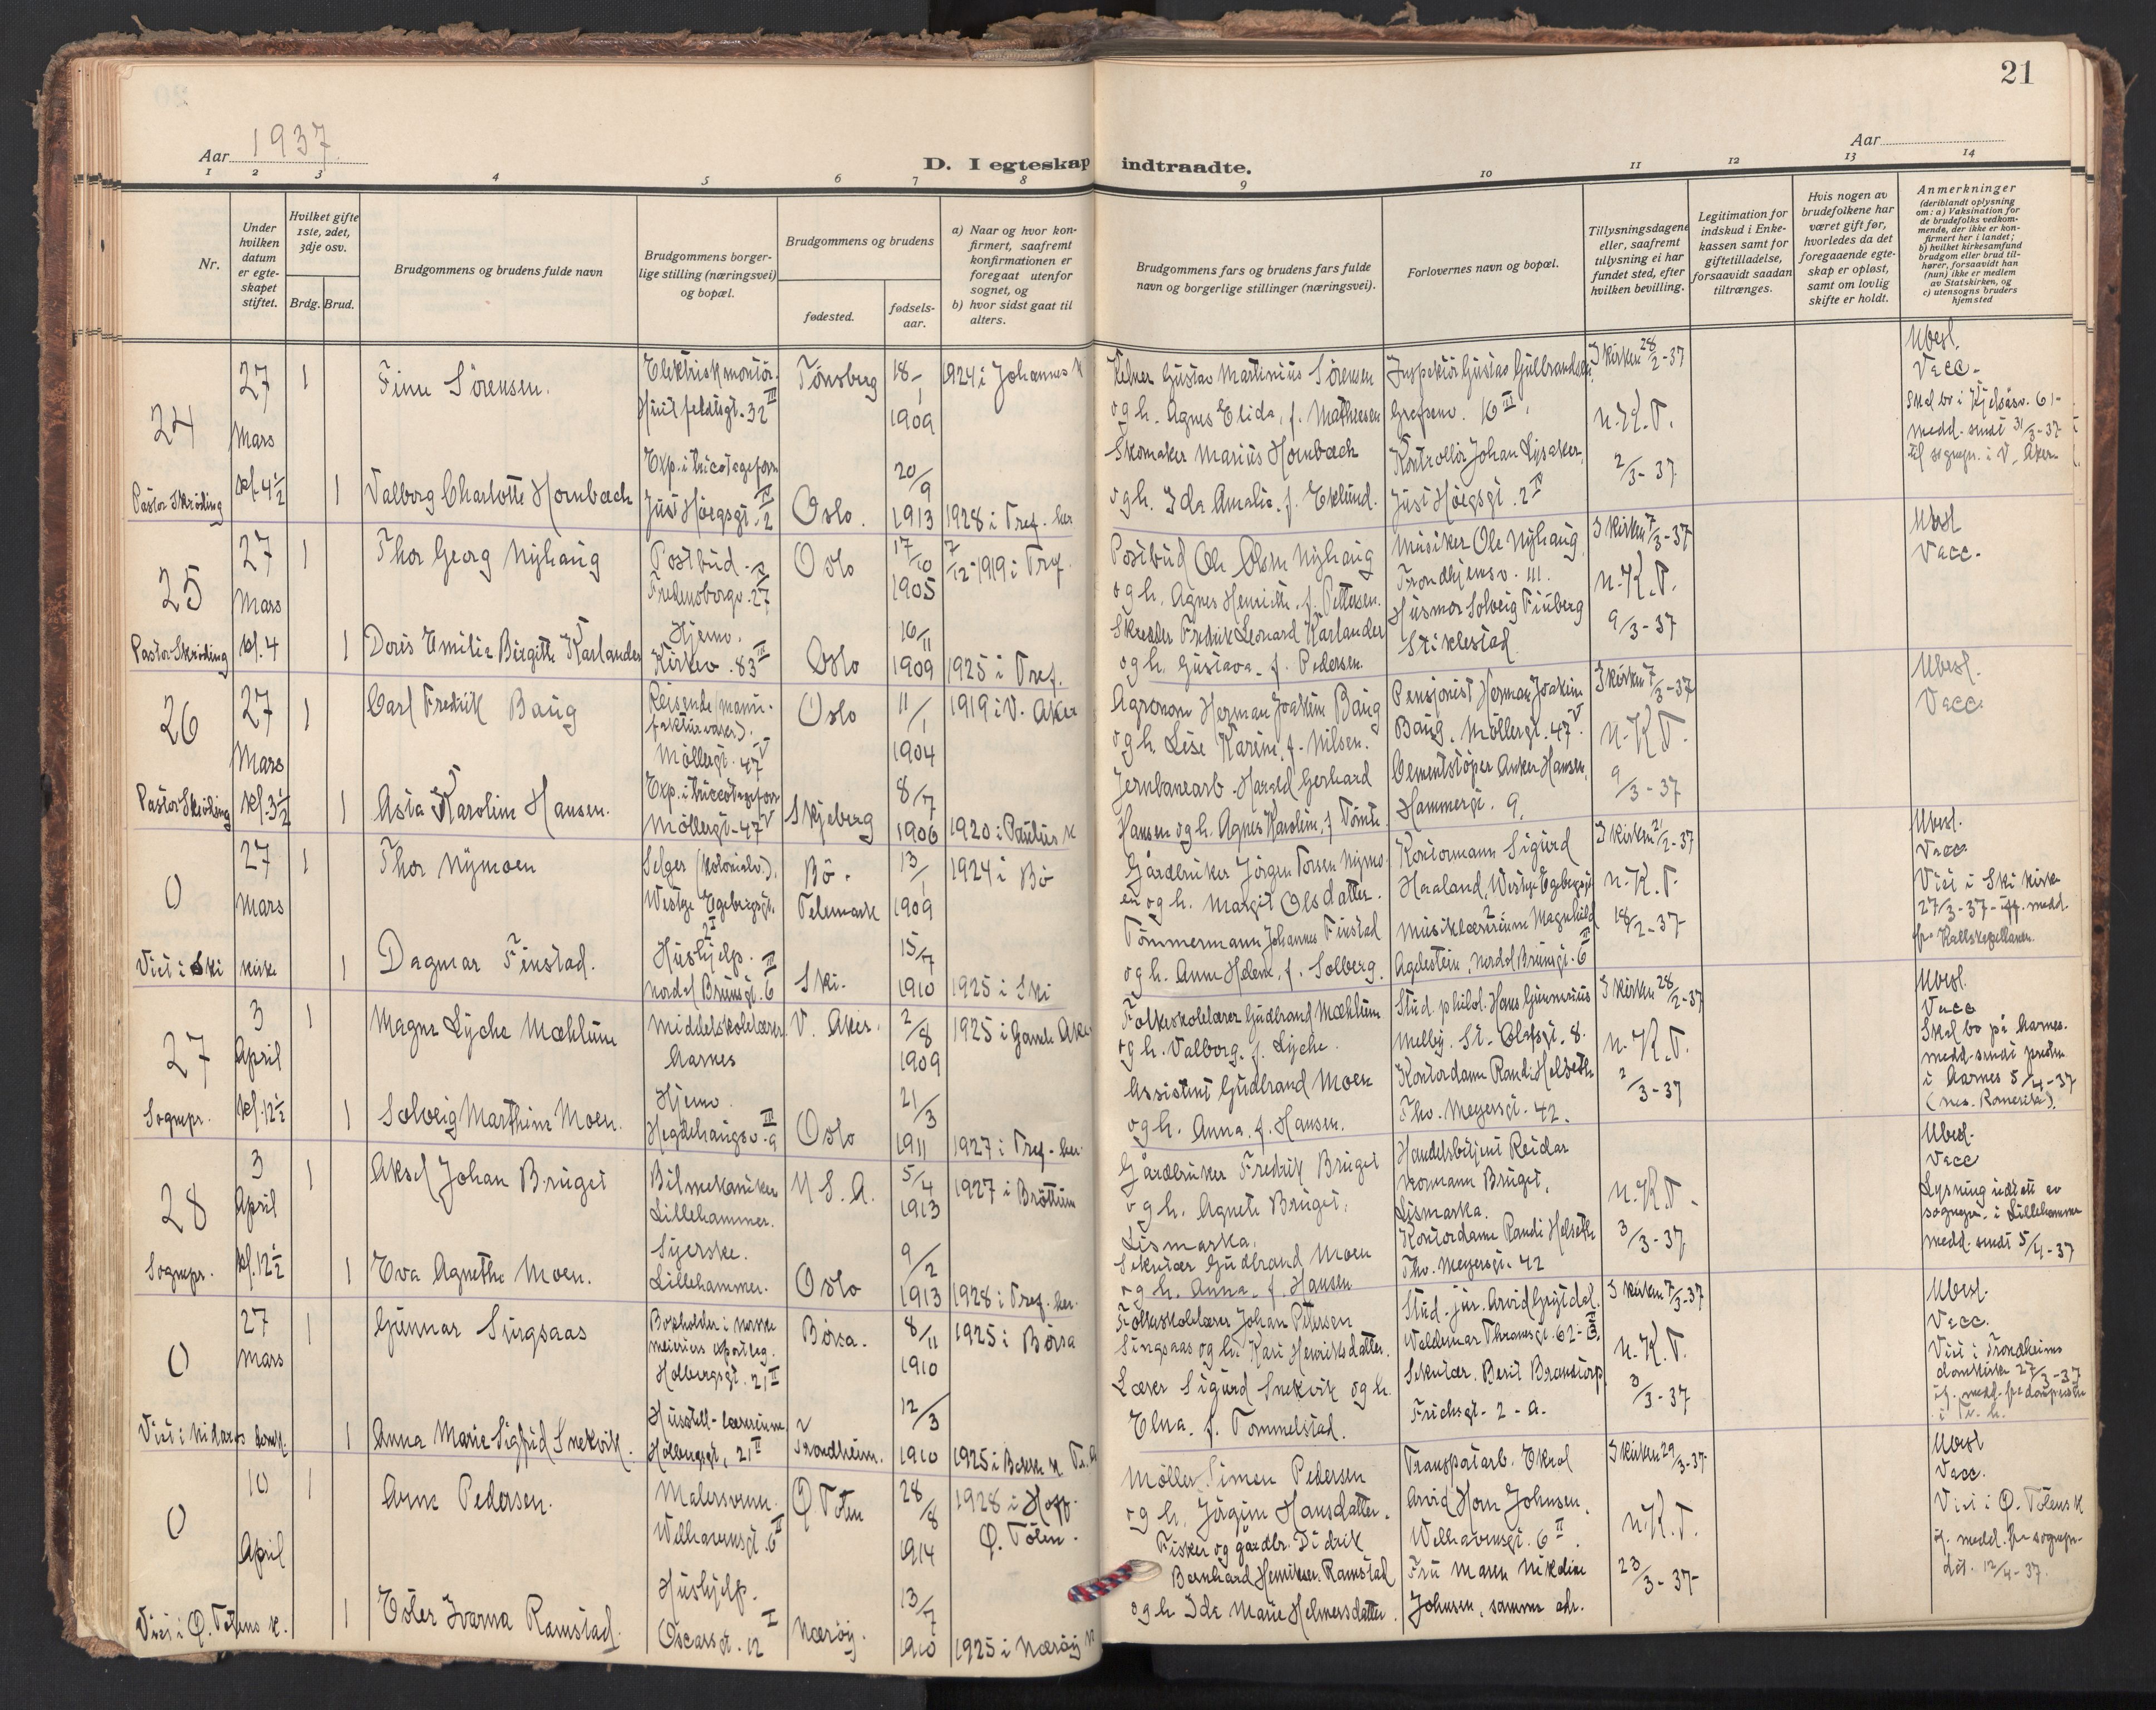 21
Aar 1937
Aar
D. I egteskap indtraadte.
1 2 3 4 5 6 7 8 9 10 11 12 13 14
Nr.
Under hvilken datum er egteskapet stiftet.
Hvilket gifte 1ste, 2det, 3dje osv.
Brdg. Brud.
Brudgommens og brudens fulde navn
Brudgommens borgerlige stilling (næringsvei) og bopæl.
Brudgommens og brudens
fødested.
fødselsaar.
a) Naar og hvor konfirmert, saafremt konfirmationen er foregaat utenfor sognet, og
b) hvor sidst gaat til alters.
Brudgommens fars og brudens fars fulde navn og borgerlige stillinger (næringsvei).
Forlovernes navn og bopæl.
Tillysningsdagene eller, saafremt tillysning ei har fundet sted, efter hvilken bevilling.
Legitimation for indskud i Enkekassen samt for giftetilladelse, forsaavidt saadan tiltrænges.
Hvis nogen av brudefolkene har været gift før, hvorledes da det foregaaende egteskap er opløst, samt om lovlig skifte er holdt.
Anmerkninger (deriblandt oplysning om: a) Vaksination for de brudefolks vedkommende, der ikke er konfirmert her i landet; b) hvilket kirkesamfund brudgom eller brud tilhører, forsaavidt han (hun) ikke er medlem av Statskirken, og c) utensogns bruders hjemsted
24
27 Mars kl. 4 1/2
Pastor Skröding
1 Finn Sörensen.
Elektriskmontör. Huitfeldtsgt. 32 III
Tönsberg 18/1 1909
1924 i Johannes K
Kelner Gustav Martinius Sörensen
og h. Agnes Elida, f. Mathiesen
Inspektör Gustav Gulbrandsen,
Grefsenv. 16 III.
I kirken 28/2-37
n.K.T.
2/3-37
Ubesl.
Vacc.
Skal bo i Kjelsåsv. 61-
medd. sendt 31/3-37
til sognepr. i V. Aker.
1 Valborg Charlotte Hornbæch
Exp. i tricotageforr. Just Höegsgt. 2 IV
Oslo. 20/9 1913
1928 i Tref. her
Skomaker Marius Hornbæch
og h. Ida Amalie, f. Eklund.
Kontrollör Johan Lysaker,
Just Höegsgt. 2 IV
25
27 Mars kl. 4
Pastor Skröding
1 Thor Georg Nyhaug
Postbud. Fredensborgv. 27
Oslo 17/10 1905
7/12-1919 i Tref.
Postbud Ole Olsen Nyhaug
og h. Agnes Henriette, f. Pettersen.
Musiker Ole Nyhaug
Trondhjemsv. 111.
I kirken 7/3-37
n.K.T.
9/3-37
Ubesl
Vacc.
1 Doris Emilie Birgitte Karlander
Hjemv. Kirkev. 83 III
Oslo 16/11 1909
1925 i Tref.
Skredder Fredrik Leonard Karlander
og h. Gustava, f. Pedersen.
Husmor Solveig Finberg
Stiklestad
26
27 Mars kl. 3 1/2
Pastor Skröding
1 Carl Fredrik Baug
Reisende (manufakturvarer). Möllergt. 47 V
Oslo 11/1 1904
1919 i V. Aker
Agronom Herman Joakim Baug
og h. Lise Karine, f. Nilsen.
Pensjonist Herman Joakim
Baug, Möllergt. 47 V.
I kirken 7/3-37
n.K.T.
9/3-37
Ubesl.
Vacc.
1 Asta Karoline Hansen.
Exp. i tricotageforr Möllergt. 47 V
Skjeberg 8/7 1906
1920 i Paulus K
Jernbanearb. Harald Gerhard
Hansen og h. Agnes Karoline, f. Tomte
Cementstöper Anker Hansen,
Hammergt. 9.
0
27 Mars
Viet i Ski kirke
1 Thor Nymoen
Selger (kolonialv.). Westye Egebergsgt. 2 I
Bö. Telemark 13/1 1909
1924 i Bö
Gårdbruker Jörgen Torsen Nymo-
en og h. Margit Olsdatter.
Kontormann Sigurd
Haaland, Westye Egebergsgt 2
I kirken 21/2-37
n.K.T.
18/2-37
Ubesl.
Vacc.
Viet i Ski kirke
27/3-37 - iff. medd.
fra Kallskapellanen.
1 Dagmar Finstad.
Hushjelp. Nordal Brunsgt. 6 III
Ski. 15/7 1910
1925 i Ski
Tömmermann Johannes Finstad
og h. Anne Helene, f. Solberg.
Musiklærerinne Magnhild
Agdestein, Nordal Brunsgt. 6 III
27
3 April kl. 12 1/2
Sognepr.
1 Magne Lyche Mæhlum
Middelskolelærer. Aarnes
V. Aker. 2/8 1909
1925 i Gamle Aker
Folkeskolelærer Gudbrand Mæhlum
og h. Valborg, f. Lyche.
Stud. philol. Hans Gunnerius
Melby. St. Olafsgt. 8.
I kirken 28/2-37
n.K.T.
2/3-37
Ubesl.
Vacc
Skal bo på Aarnes.
medd. sendt presten
i Aarnes 5/4-37
(nes. Romerike).
1 Solveig Marthine Moen.
Hjemv. Hegdehaugsv. 9 III
Oslo 21/3 1911
1927 i Tref. her.
Assistent Gudbrand Moen
og h. Anna, f. Hansen.
Kontordame Randi Helseth
Thv. Meyersgt. 42.
28
3 April kl. 12 1/2
Sognepr.
1 Aksel Johan Bruget
Bilmekaniker Lillehammer.
U.S.A. 5/4 1913
1927 i Bröttum
Gårdbruker Fredrik Bruget
og h. Agnete Bruget,
Lismarka.
Handelsbetjent Reidar
Normann Bruget,
Lismarka.
n.K.T.
3/3-37
Ubesl.
Vacc
Lysning utstatt av
sognepr. i Lillehammer
medd. sendt 5/4-37
1 Eva Agnethe Moen.
Syerske. Lillehammer.
Oslo 9/2 1913
1928 i Tref. her.
Sekretær Gudbrand Moen
og h. Anna, f. Hansen
Kontordame Randi Helseth
Thv. Meyersgt. 42
0
27 Mars
Viet i Nidaros domk.
1 Gunnar Singsaas
Bokholder i norske meieriers exportlag. Holbergsgt. 21 II
Börsa. 8/11 1910
1925 i Börsa
Folkeskolelærer Johan Petersen
Singsaas og h. Kari Henriksdatter.
Stud. jur. Arvid Grytdal.
Waldemar Thranesgt. 62
I kirken 7/3-37
n.K.T.
3/3-37
Ubesl.
Vacc.
Viet i Trondheims
domkirke 27/3-37
if. medd. fra domprosten
i Tr.h.
1 Anna Marie Sigfrid Snekvik.
Husstell-lærerinne Holbergsgt. 21 II
Trondheim. 12/3 1910
1925 i Bakke K. Tr.
Lærer Sigurd Snekvik og h.
Elna, f. Tommelstad.
Sekretær. Berit Brandtorp,
Frichsgt. 2-a.
0
10 April
Viet i Ö. Totens K.
1 Arne Pedersen.
Malersvenn. Welhavensgt. 6 II
Ö Toten 28/8 1914
1928 i Hoff. Ö. Toten.
Möller Simen Pedersen
og h. Jörgine Hansdatter.
Transportarb. Ekrol
Arvid Horn Johnsen.
Welhavensgt. 6 II.
I kirken 29/3-37
n.K.T.
23/3-37
Ubesl
Vacc.
Viet i Ö. Totens K
if. medd. fra sognepr.
dat. 12/4-37.
1 Ester Ivarna Ramstad.
Hushjelp. Oscarsgt. 12 I
Næröy. 13/7 1910
1925 i Næröy K
Fisker og gårdbr. Didrik
Bernhard Henriksen Ramstad
og h Ida Marie Helmersdatter.
Fru Maren Nikoline
Johnsen, samme adr.